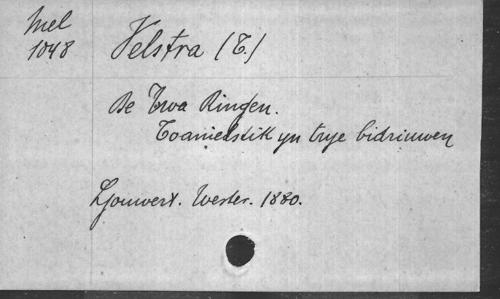 Mel
1048
Velstra (T.)
De Twa Ringen.
Toanielstik yn trye bidriuwen
Ljouwert. Wester. 1880.